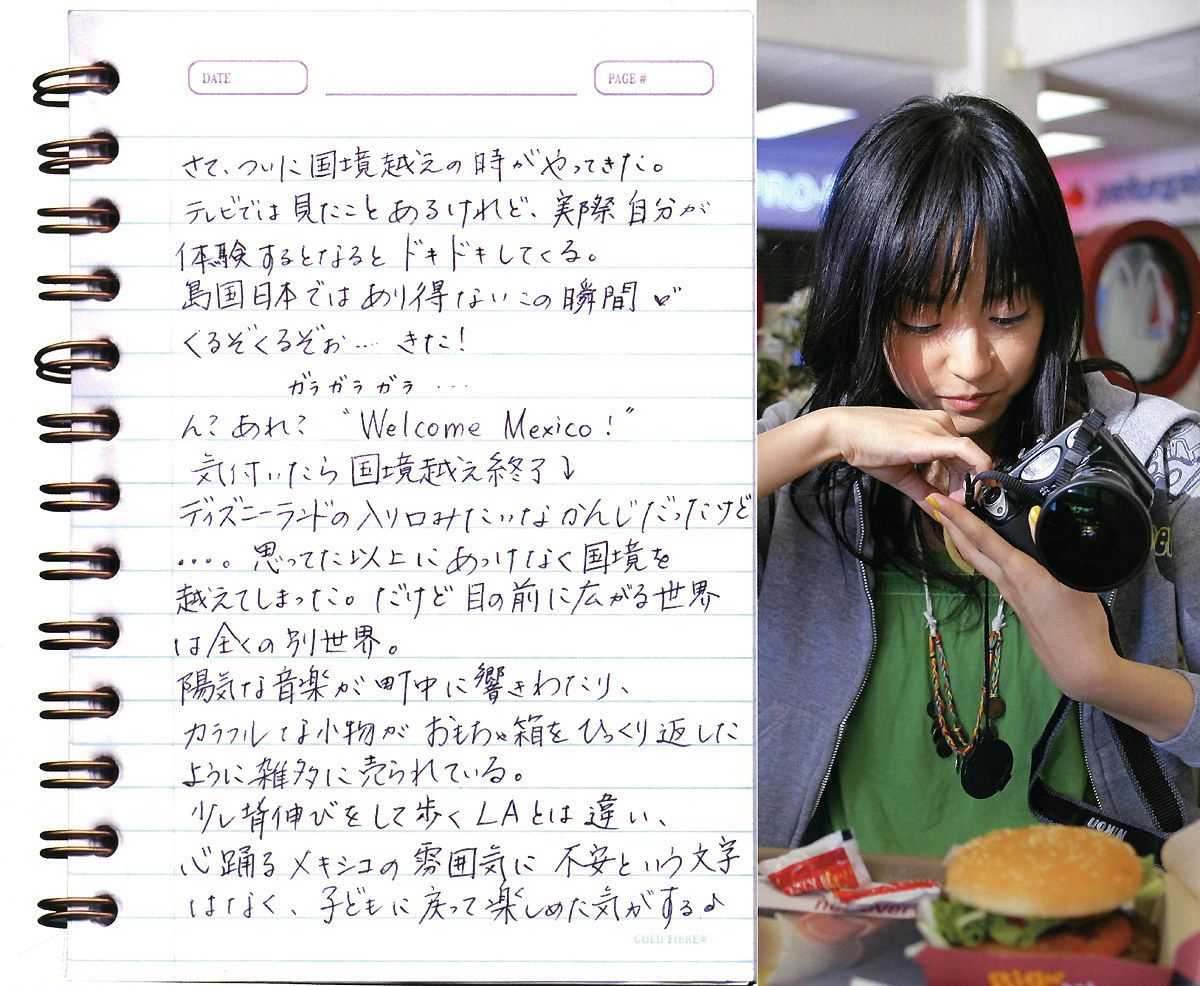 DATE
PAGE #
さて、ついに国境越えの時がやってきた。
テレビでは見たことあるけれど、実際自分が
体験するとなるとドキドキしてくる。
島国日本ではあり得ないこの瞬間
くるぞくるぞぉ… きた!
ガラガラガラ…
ん?あれ? "Welcome Mexico!"
気付いたら国境越え終了↓
ディズニーランドの入り口みたいなかんじだったけど
…。思ってた以上にあっけなく国境を
越えてしまった。だけど目の前に広がる世界
は全くの別世界。
陽気な音楽が町中に響きわたり、
カラフルな小物がおもちゃ箱をひっくり返した
ように雑多に売られている。
少し背伸びをして歩くLAとは違い、
心踊るメキシコの雰囲気に不安という文字
はなく、子どもに戻って楽しめた気がする♪
GOLD FIBRE®
NIKON